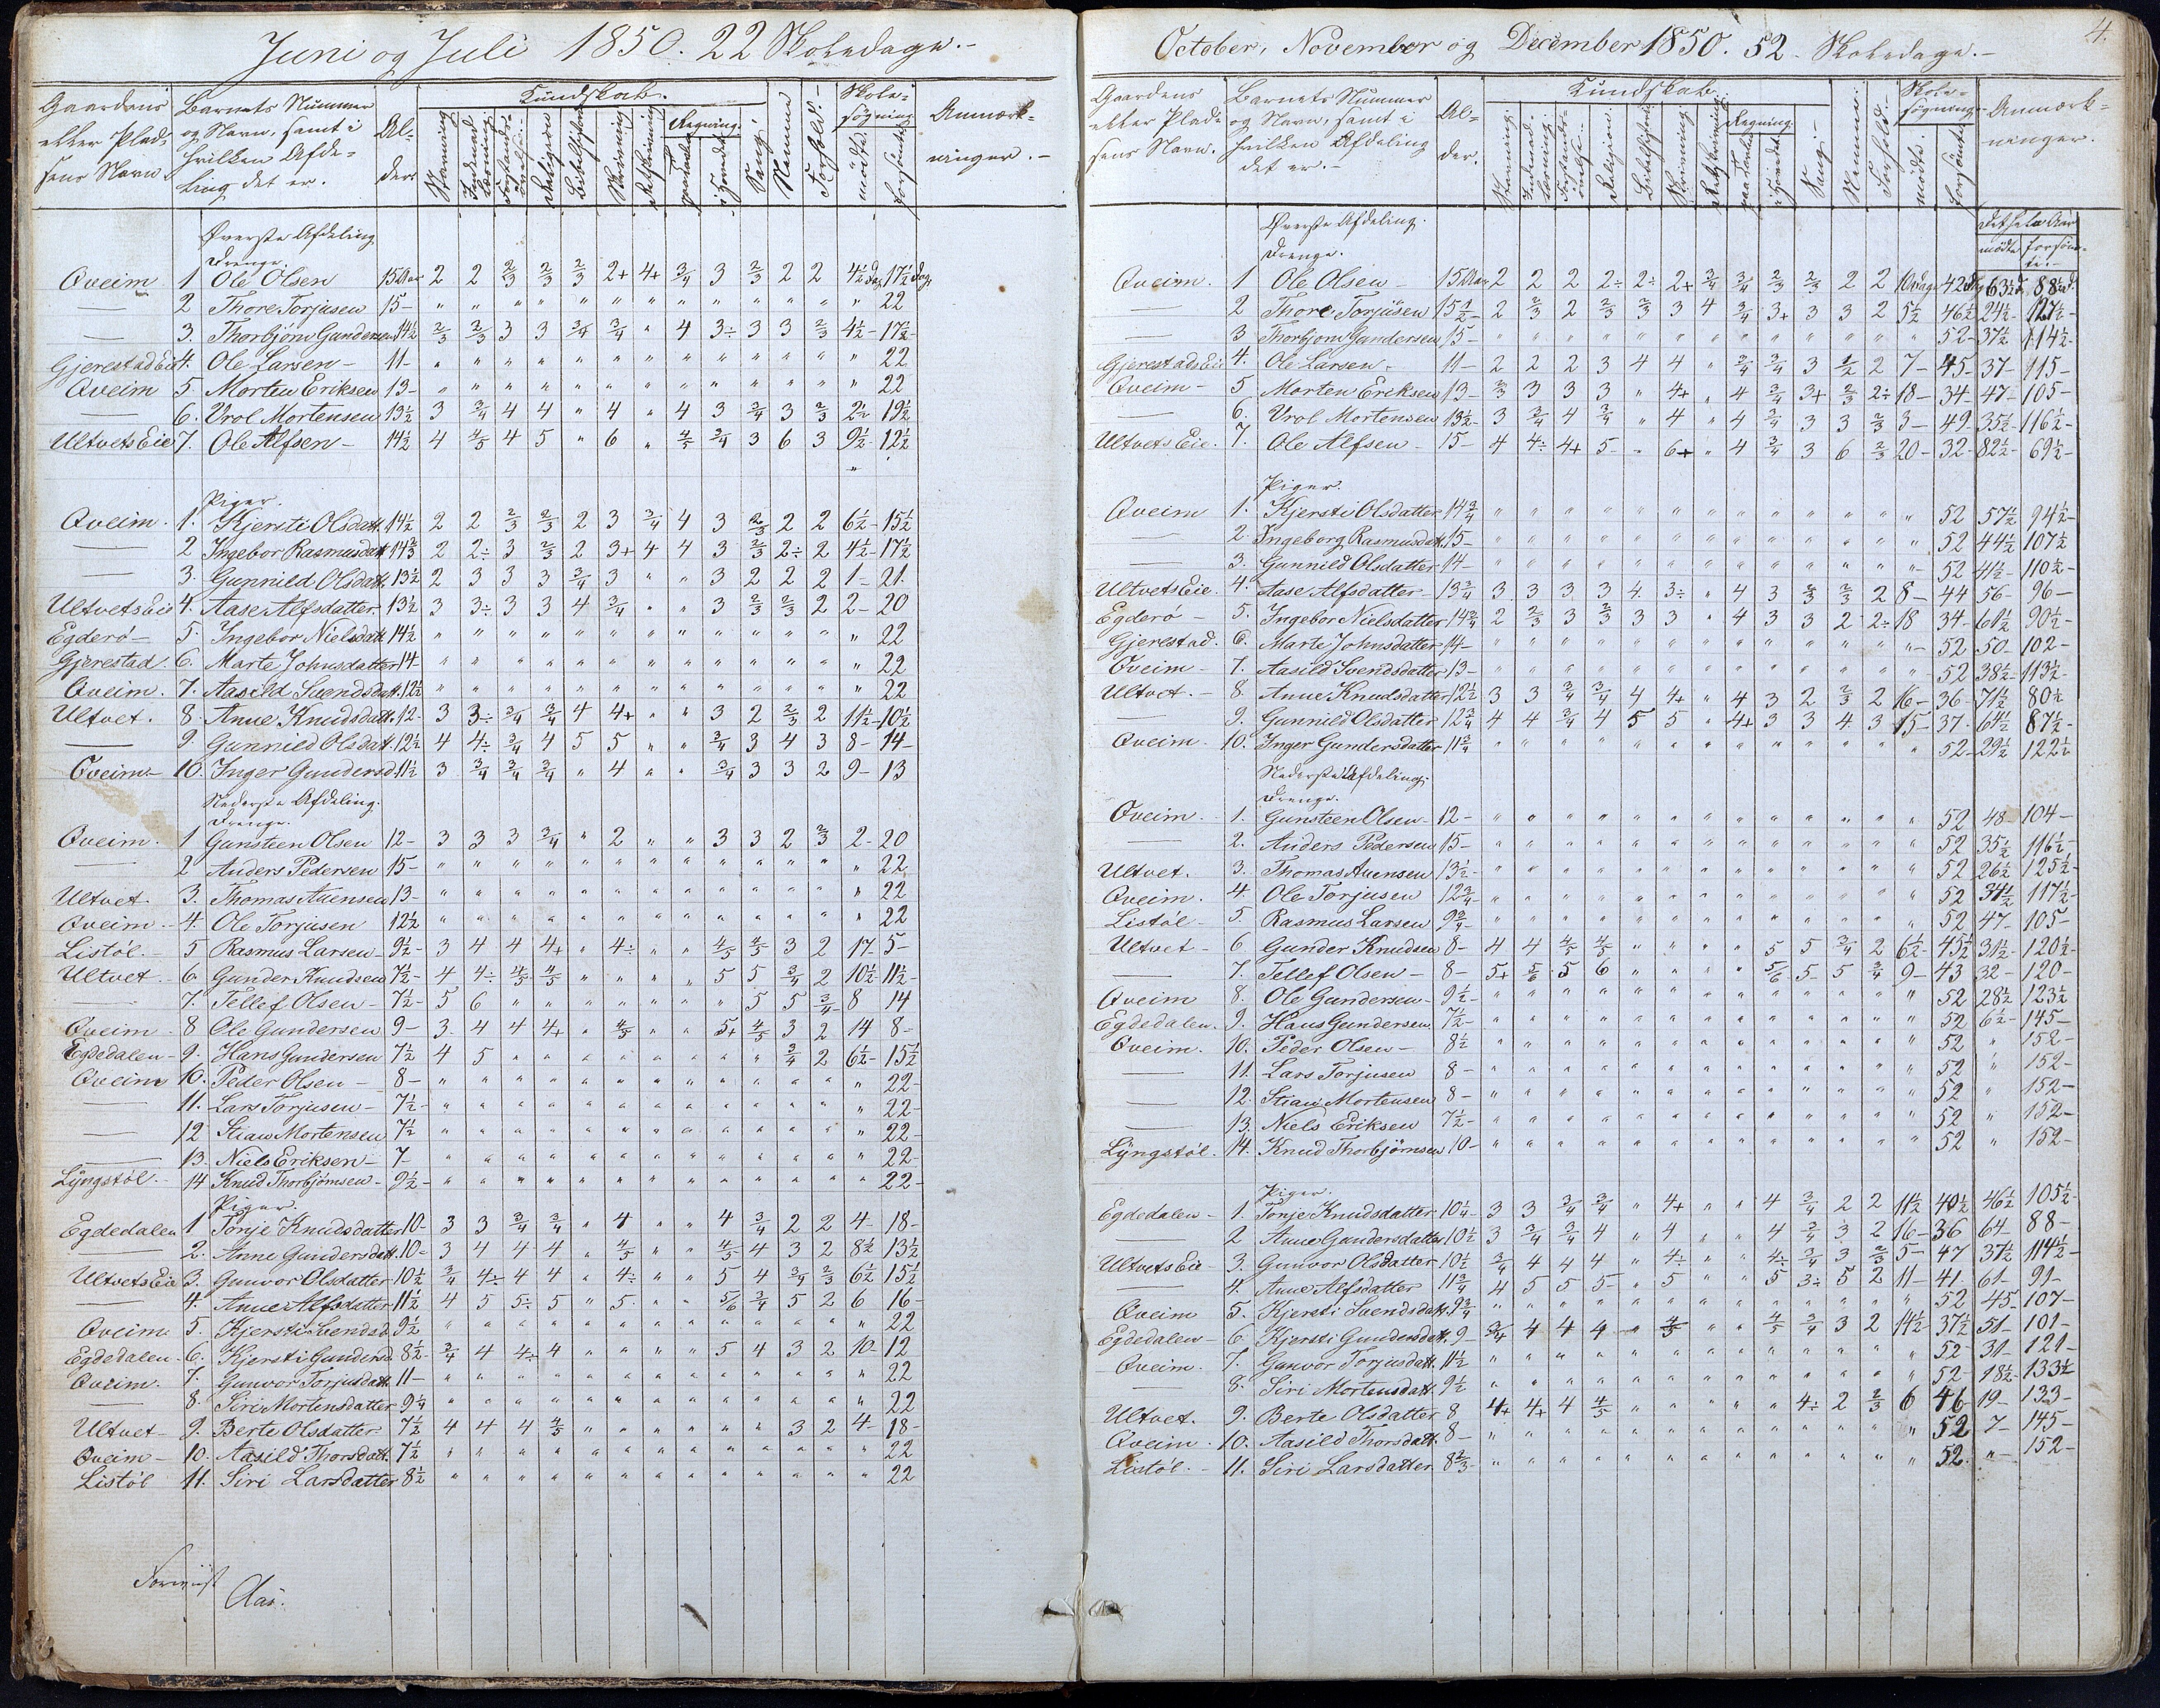 Juni og Juli 1850. 22 Skoledage.-
Gaardens eller Pladsens Navn
Barnets Nummer og Navn, samt i hvilken Afdeling det er.
Alder.
Kundskab.
Stavning
Indenad Læsning
Forstandsøvelse
Religion
Bibelhistorie
Skrivning
Retskrivning
Regning.
paa Tavlen
i Hovedet
Sang.
Nemme
Forhold.-
Skolesøgning
mødte.
forsømte.
Anmærkninger.-
Øverste Afdeling
Drenge.
Qveim 1 Ole Olsen 15 Aar 2 2 2/3 2/3 2/3 2+ 4+ 3/4 3 2/3 2 2 4½ Dag 17½ Dag
— 2 Thore Torjusen 15- " " " " " " " " " " " " " 22
— 3. Thorbjørn Gundersen 14½ 2/3 2/3 3 3 3/4 3/4 " 4 3÷ 3 3 2/3 4½- 17½-
Gjerestad Eie 4. Ole Larsen- 11- " " " " " " " " " " " " " 22
Qveim 5 Morten Eriksen 13- " " " " " " " " " " " " " 22
— 6. Vrol Mortensen 13½ 3 3/4 4 4 " 4 " 4 3 3/4 3 2/3 2½ 19½
Ultvets Eie 7. Ole Alfsen- 14½ 4 4/5 4 5 " 6 " 4/5 3/4 3 6 3 9½- 12½
Piger.
Qveim. 1. Kjersti Olsdatt. 14½ 2 2 2/3 2/3 2 3 3/4 4 3 2/3 2 2 6½- 15½
— 2 Ingebor Rasmusdatt 14⅔ 2 2÷ 3 2/3 2 3+ 4 4 3 2/3 2÷ 2 4½- 17½
— 3. Gunnild Olsdatt. 13½ 2 3 3 3 3/4 3 " " 3 2 2 2 1- 21.
Ultvets Eie 4. Aase Alfsdatter. 13½ 3 3÷ 3 3 4 3/4 " " 3 2/3 2/3 2 2- 20
Egderø- 5. Ingebor Nielsdatt 14½ " " " " " " " " " " " " " 22
Gjerestad. 6. Marte Johnsdatter 14- " " " " " " " " " " " " " 22
Qveim. 7. Aasild Svendsdatt. 12½ " " " " " " " " " " " " " 22
Ultvet. 8. Anne Knudsdatt. 12- 3 3÷ 3/4 3/4 4 4+ " " 3 2 2/3 2 11½- 10½
— 9. Gunnild Olsdatt. 12½ 4 4÷ 3/4 4 5 5 " " 3/4 3 4 3 8- 14-
Qveim- 10. Inger Gundersd. 11½ 3 3/4 3/4 3/4 " 4 " " 3/4 3 3 2 9- 13
Nederste Afdeling.
Drenge.
Qveim. 1 Gunsteen Olsen 12- 3 3 3 3/4 " 2 " " 3 3 2 2/3 2- 20
— 2 Anders Pedersen 15- " " " " " " " " " " " " " 22
Ultvet. 3. Thomas Auensen 13- " " " " " " " " " " " " " 22
Qveim.- 4. Ole Torjusen 12½ " " " " " " " " " " " " " 22
Listøl.- 5 Rasmus Larsen 9½- 3 4 4 4+ " 4÷ " " 4/5 4/5 3 2 17- 5-
Ultvet- 6 Gunder Knudsen 7½- 4 4÷ 4/5 4/5 " " " " 5 5 3/4 2 10½- 11½-
— 7. Tellef Olsen- 7½- 5 6 " " " " " " " 5 5 3/4 8 14
Qveim- 8 Ole Gundersen 9- 3. 4 4 4+ " 4/5 " " 5+ 4/5 3 2 14 8-
Egdedalen- 9. Hans Gundersen 7½ 4 5 " " " " " " " " 3/4 2 6½- 15½
Qveim 10. Peder Olsen- 8- " " " " " " " " " " " " " 22-
— 11. Lars Torjusen- 7½- " " " " " " " " " " " " " 22-
— 12 Stian Mortensen 7½ " " " " " " " " " " " " " 22-
— 13. Niels Eriksen- 7- " " " " " " " " " " " " " 22-
Lyngstøl.- 14 Knud Thorbjørnsen- 9½- " " " " " " " " " " " " " 22-
Piger.
Egdedalen 1 Tonje Knudsdatter 10- 3 3 3/4 3/4 " 4 " " 4 3/4 2 2 4- 18-
— 2. Anne Gundersdatt. 10- 3 4 4 4 " 4/5 " " 4/5 4 3 2 8½ 13½
Ultvets Eie 3. Gunvor Olsdatter 10½ 3/4 4÷ 4 4 " 4÷ " " 5 4 3/4 2/3 6½ 15½
— 4. Anne Alfsdatter 11½ 4 5 5÷ 5 " 5. " " 5/6 3/4 5 2 6 16-
Qveim 5. Kjersti Svendsd. 9½ " " " " " " " " " " " " " 22
Egdedalen- 6. Kjersti Gundersd. 8½- 3/4 4 4÷ 4 " " " " 5 4 3 2 10- 12
Qveim. 7. Gunvor Torjusdatt. 11- " " " " " " " " " " " " " 22
— 8. Siri Mortensdatter 9¼ " " " " " " " " " " " " " 22
Ultvet- 9. Berte Olsdatter 7½ 4 4 4 4/5 " " " " " " 3 2 4- 18-
Qveim- 10. Aasild Thorsdatt. 7½ " " " " " " " " " " " " " 22
Listøl 11. Siri Larsdatter 8½ " " " " " " " " " " " " " 22
Aas.
4.
October, November og December 1850. 52- Skoledage.-
Gaardens eller Pladsens Navn.
Barnets Nummer og Navn, samt i hvilken Afdeling det er.-
Alder.
Kundskab.
Stavning.
Indenad-læsning.
Forstandsøvelse.
Religion.
Bibelhistorie.
Skrivning
Retskrivning.
Regning.
paa Tavlen
i Hovedet.
Sang.-
Nemme.
Forhold.
Skolesøgning-
mødte.
forsømte.
Anmærkninger.
Øverste Afdeling.
Det hele Aar
mødte forsømte.-
Drenge.
Qveim. 1 Ole Olsen- 15 Aar 2 2 2 2÷ 2÷ 2+ 3/4 3/4 2/3 2/3 2 2 10 dage 42 Dag 63½ d. 88½ d.
— 2 Thore Torjusen 15½- 2 2/3 2 2/3 2/3 3 4 3/4 3+ 3 3 2 5½ 46½ 24½- 127½-
— 3 Thorbjørn Gundersen 15- " " " " " " " " " " " " " 52- 37½ 114½-
Gjerestads Eie 4. Ole Larsen- 11- 2 2 2 3 4 4 " 3/4 3/4 3 1/2 2 7- 45- 37- 115-
Qveim- 5 Morten Eriksen 13- 2/3 3 3 3 " 4+ " 4 3/4 3+ 2/3 2÷ 18- 34- 47- 105-
— 6. Vrol Mortensen 13½- 3 3/4 4 3/4 " 4 " 4 3/4 3 3 2/3 3- 49- 35½- 116½-
Ultvets Eie. 7. Ole Alfsen- 15- 4 4÷ 4+ 5- " 6+ " 4 3/4 3 6 2/3 20- 32- 82½- 69½-
Piger.
Qveim 1. Kjersti Olsdatter 14¾ " " " " " " " " " " " " " 52 57½ 94½-
— 2. Ingeborg Rasmusdatt. 15- " " " " " " " " " " " " " 52 44½ 107½
— 3. Gunnild Olsdatter 14- " " " " " " " " " " " " " 52 41½- 110½-
Ultvets Eie. 4. Aase Alfsdatter- 13¾ 3 3 3 3 4. 3÷ " 4 3 2/3 2/3 2 8- 44 56- 96-
Egderø- 5. Ingebor Nielsdatter 14¾ 2 2/3 3 2/3 3 3 " 4 3 3 2 2÷ 18 34- 61½ 90½-
Gjerestad. 6. Marte Johnsdatter 14- " " " " " " " " " " " " " 52 50- 102-
Qveim- 7. Aasild Svendsdatter 13- " " " " " " " " " " " " " 52 38½- 113½-
Ultvet.- 8. Anne Knudsdatter 12½ 3 3 3/4 3/4 4 4+ " 4 3 2 2/3 2 16- 36- 71½ 80½
— 9. Gunnild Olsdatter 12¾ 4 4 3/4 4 5 5 " 4+ 3 3 4 3 15- 37- 64½ 87½-
Qveim. 10. Inger Gundersdatter 11¾ " " " " " " " " " " " " " 52- 29½ 122½
Nederste Afdeling.
Drenge.
Qveim. 1. Gunsteen Olsen- 12- " " " " " " " " " " " " " 52 48- 104-
— 2. Anders Pedersen 15- " " " " " " " " " " " " " 52 35½ 116½-
Ultvet. 3. Thomas Auensen 13½- " " " " " " " " " " " " " 52 26½ 125½-
Qveim. 4. Ole Torjusen 12¾- " " " " " " " " " " " " " 52 34½ 117½-
Listøl- 5. Rasmus Larsen 9¾- " " " " " " " " " " " " " 52 47- 105-
Ultvet- 6 Gunder Knudsen 8- 4 4 4/5 4/5 " " " " 5 5 3/4 2 6½- 45½ 31½- 120½-
— 7. Tellef Olsen- 8- 5+ 5/6 5 6 " " " " 5/6 5 5 3/4 9- 43 32- 120-
Qveim 8. Ole Gundersen- 9½- " " " " " " " " " " " " " 52 28½ 123½
Egdedalen. 9. Hans Gundersen 7½- " " " " " " " " " " " " " 52 6½- 145-
Qveim. 10. Peder Olsen- 8½ " " " " " " " " " " " " " 52 " 152-
— 11. Lars Torjusen 8- " " " " " " " " " " " " " 52 " 152-
— 12. Stian Mortensen 8- " " " " " " " " " " " " " 52 " 152-
— 13. Niels Eriksen 7½- " " " " " " " " " " " " " 52 " 152-
Lyngstøl. 14. Knud Thorbjørnsen 10- " " " " " " " " " " " " " 52 " 152-
Piger.
Egdedalen- 1. Tonje Knudsdatter 10¼- 3 3 3/4 3/4 " 4+ " " 4 3/4 2 2 11½ 40½ 46½ 105½-
— 2 Anne Gundersdatter 10½ 3 3/4 3/4 4 " 4 " " 4 3/4 3 2 16- 36 64- 88-
Ultvets Eie 3. Gunvor Olsdatter 10½ 3/4 4 4 4 " 4÷ " " 4÷ 3/4 3 2/3 5- 47 37½ 114½-
— 4. Anne Alfsdatter 11¾ 4 5 5 5- " 5 " " 5 3÷ 5 2 11- 41. 61- 91-
Qveim 5. Kjersti Svendsdatt. 9¾ " " " " " " " " " " " " " 52 45- 107-
Egdedalen- 6. Kjersti Gundersdatt. 9- 3/4 4 4 4 " 4/5 " " 4/5 3/4 3 2 14½- 37½ 51- 101-
Qveim. 7. Gunvor Torjusdatt. 11½ " " " " " " " " " " " " " 52- 31- 121-
— 8. Siri Mortensdatt. 9½ " " " " " " " " " " " " " 52- 18½- 133½
Ultvet. 9. Berte Olsdatter 8 4+ 4+ 4 4/5 " " " " " 4÷ 2 2/3 6 46 19- 133-
Qveim. 10. Aasild Thorsdatt. 8- " " " " " " " " " " " " " 52 7- 145-
Listøl.- 11. Siri Larsdatter 8⅔- " " " " " " " " " " " " " 52. "- 152-